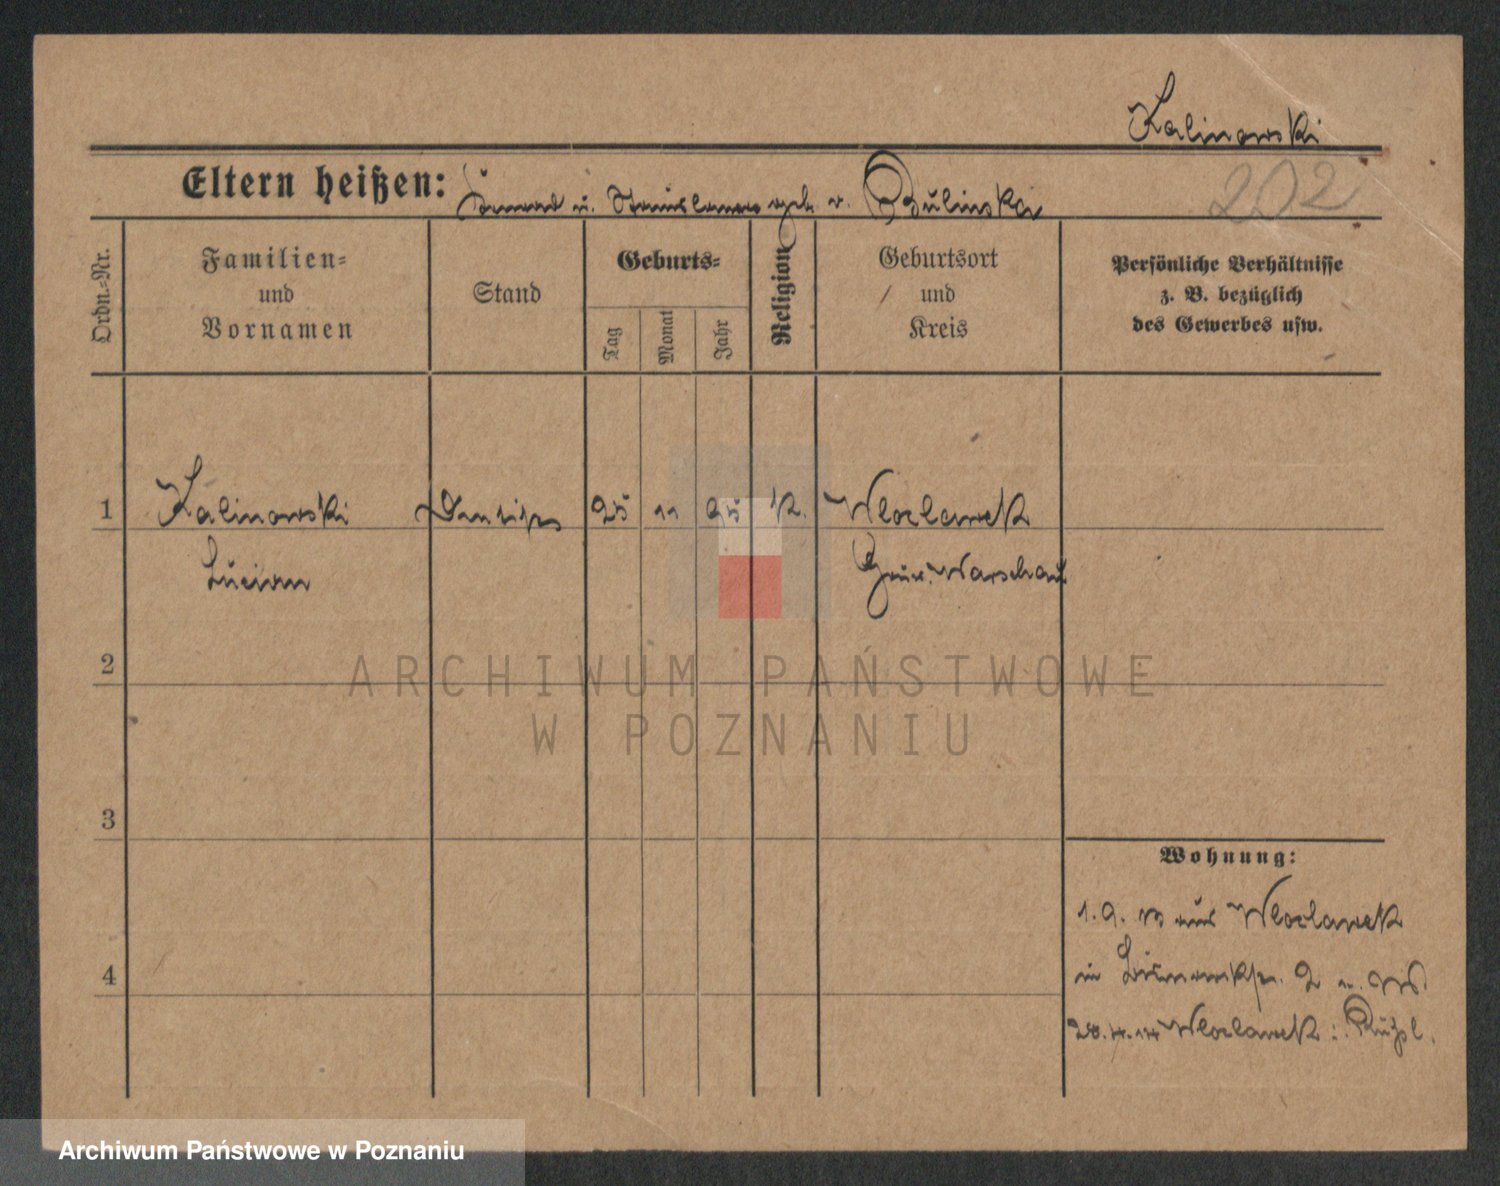 Kalinowski
Eltern heißen: u. Stanislawa geb. v. Bulinska
202
Ordn.-Nr.
Familien-
und
Vornamen
Stand
Geburts-
Tag
Monat
Jahr
Religion
Geburtsort
und
Kreis
Persönliche Verhältnisse
z. B. bezüglich
des Gewerbes usw.
1 Kalinowski 25 11 95 K. Wloclawek
Lucian Gouv. Warschau
ARCHIWUM PAŃSTWOWE
W POZNANIU
2
3
Wohnung:
1.9. 13 aus Wloclawek
in Bismarckstr. 2
4
28.4.14 Wloclawek
Archiwum Państwowe w Poznaniu